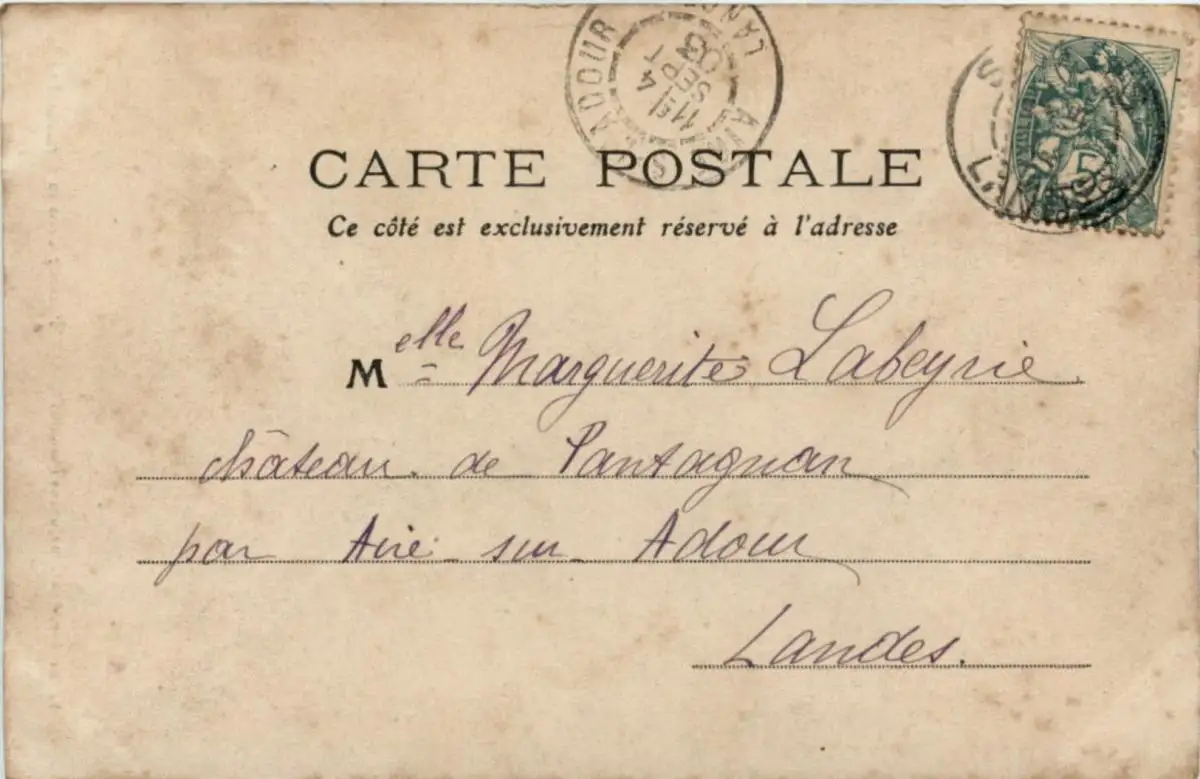 AIRE S. ADOUR LANDES
11E 4
SEPT
03
5
LANDES
CARTE POSTALE
Ce côté est exclusivement réservé à l'adresse
Melle Marguerite Labeyrie
château de Pantagnan
par Aire sur Adour
Landes.